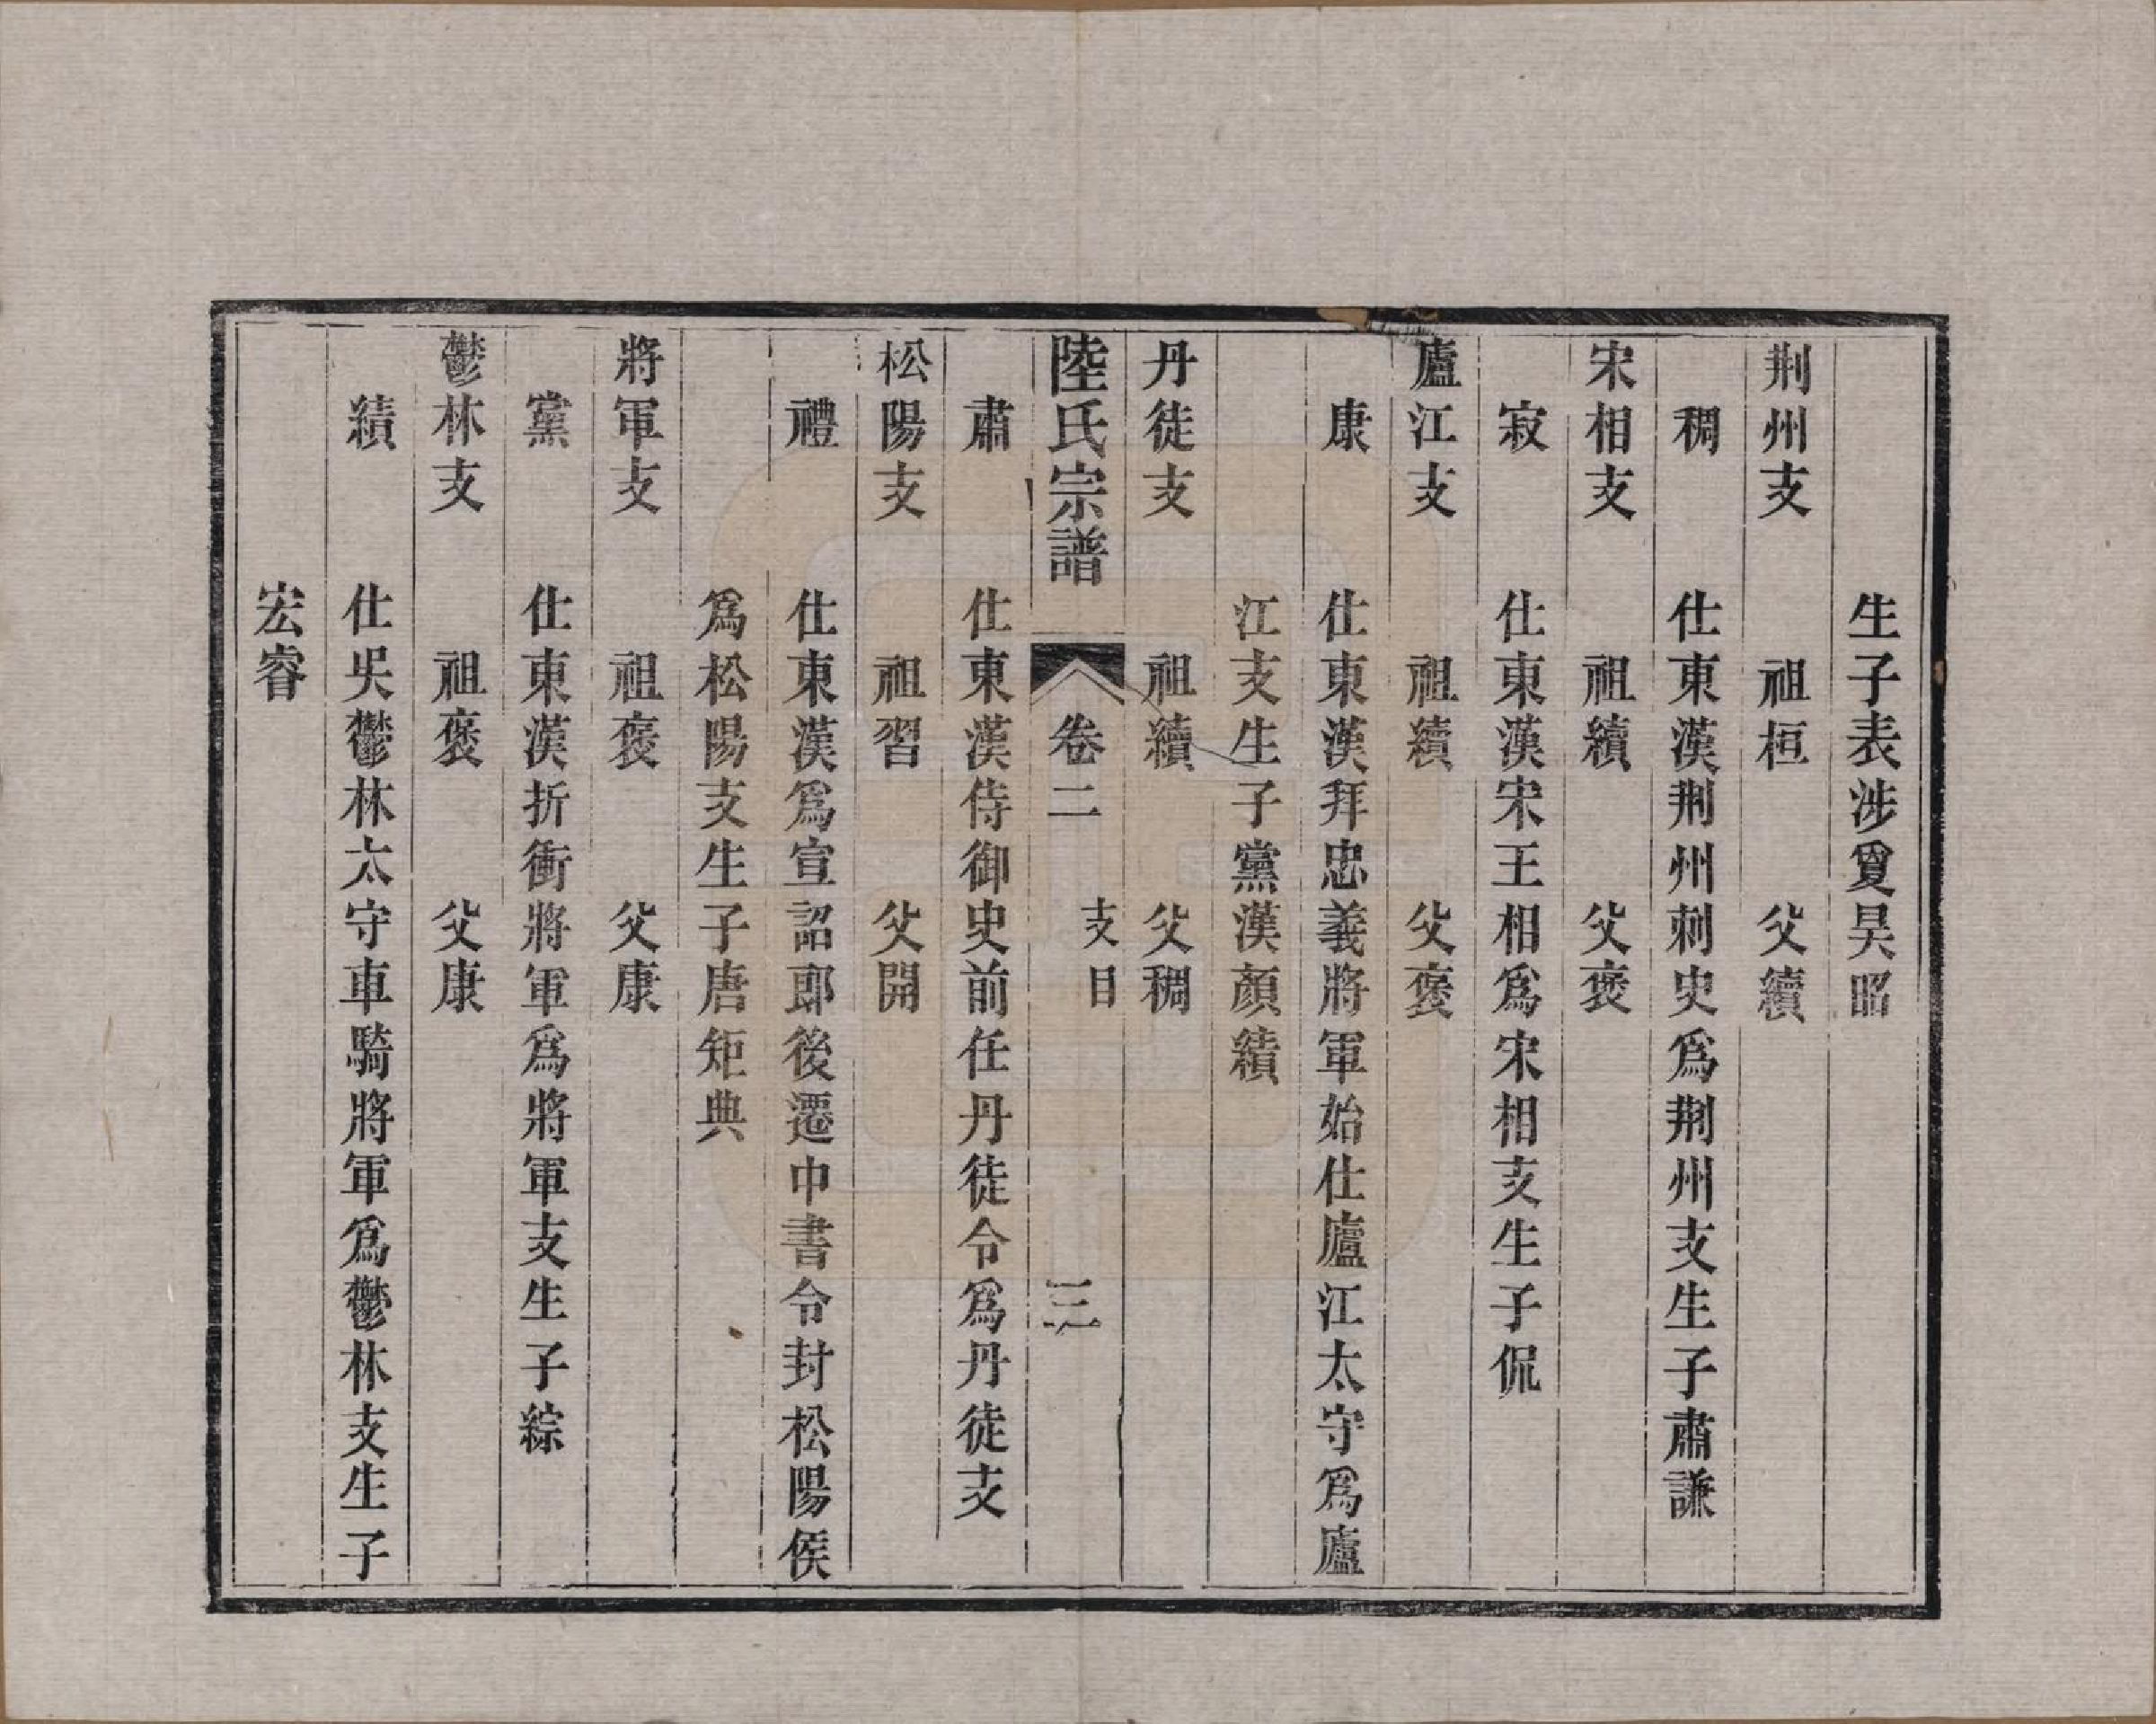 生子表涉夐昊昭
荆州支　祖桓　父續
稠　仕東漢荆州刺史爲荆州支生子肅謙
宋相支　祖續　父褒
寂　仕東漢宋王相爲宋相支生子侃
廬江支　祖續　父褒
康　仕東漢拜忠義將軍始仕廬江太守爲廬
江支生子黨漢顔績
丹徒支　祖續　父稠
陸氏宗譜　卷二　支目　三
肅　仕東漢侍御史前任丹徒令爲丹徒支
松陽支　祖習　父開
禮　仕東漢爲宣詔郎後遷中書令封松陽侯
爲松陽支生子唐矩典
將軍支　祖褒　父康
黨　仕東漢折衝將軍爲將軍支生子綜
鬱林支　祖褒　父康
績　仕吳鬱林太守車騎將軍爲鬱林支生子
宏睿